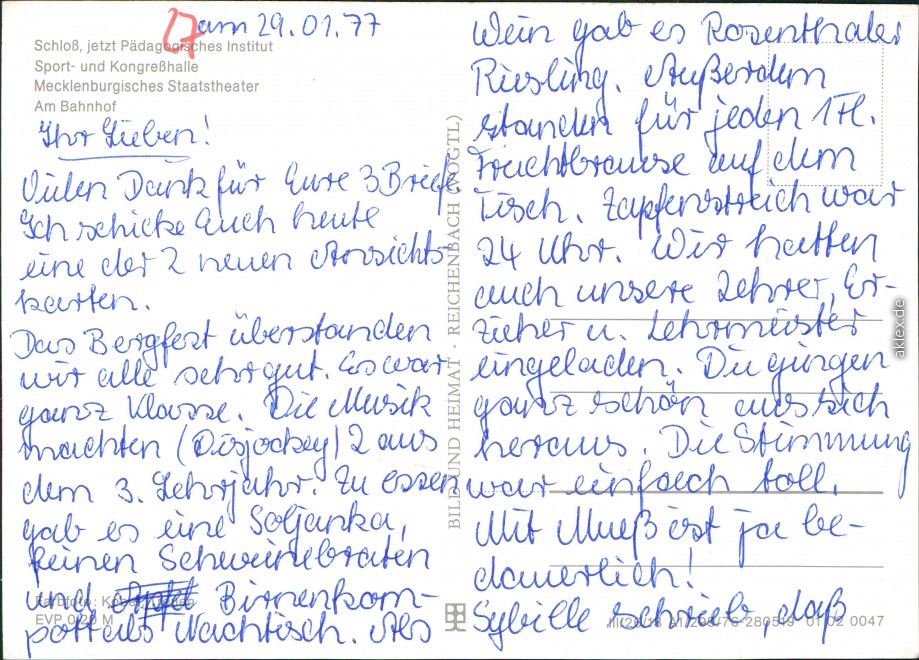 am 29.01.77
Schloß, jetzt Pädagogisches Institut
Sport- und Kongreßhalle
Mecklenburgisches Staatstheater
Am Bahnhof
Ihr Lieben!
Vielen Dank für Eure 3 Briefe
Ich schicke Euch heute
eine der 2 neuen Ansichts-
karten.
Das Bergfest überstanden
wir alle sehr gut. Es war
ganz Klasse. Die Musik
machten (Disjockey) 2 aus
dem 3. Lehrjahr. Zu essen
gab es eine Soljanka,
feinen Schweinebraten
und Birnenkom-
pott als Nachtisch. Als
Farbfoto:
EVP 0,20 M
BILD UND HEIMAT · REICHENBACH (VOGTL)
Wein gab es Rosenthaler
Riesling. Außerdem
standen für jeden 1 Fl.
Fruchtbrause auf dem
Tisch. Zapfenstreich war
24 Uhr. Wir hatten
auch unsere Lehrer, Er-
zieher u. Lehrmeister
eingeladen. Die gingen
ganz schön aus sich
heraus. Die Stimmung
war einfach toll.
Mit Mueß ist ja be-
dauerlich!
Sybille schrieb, daß
280519 01 02 0047
aklex.de